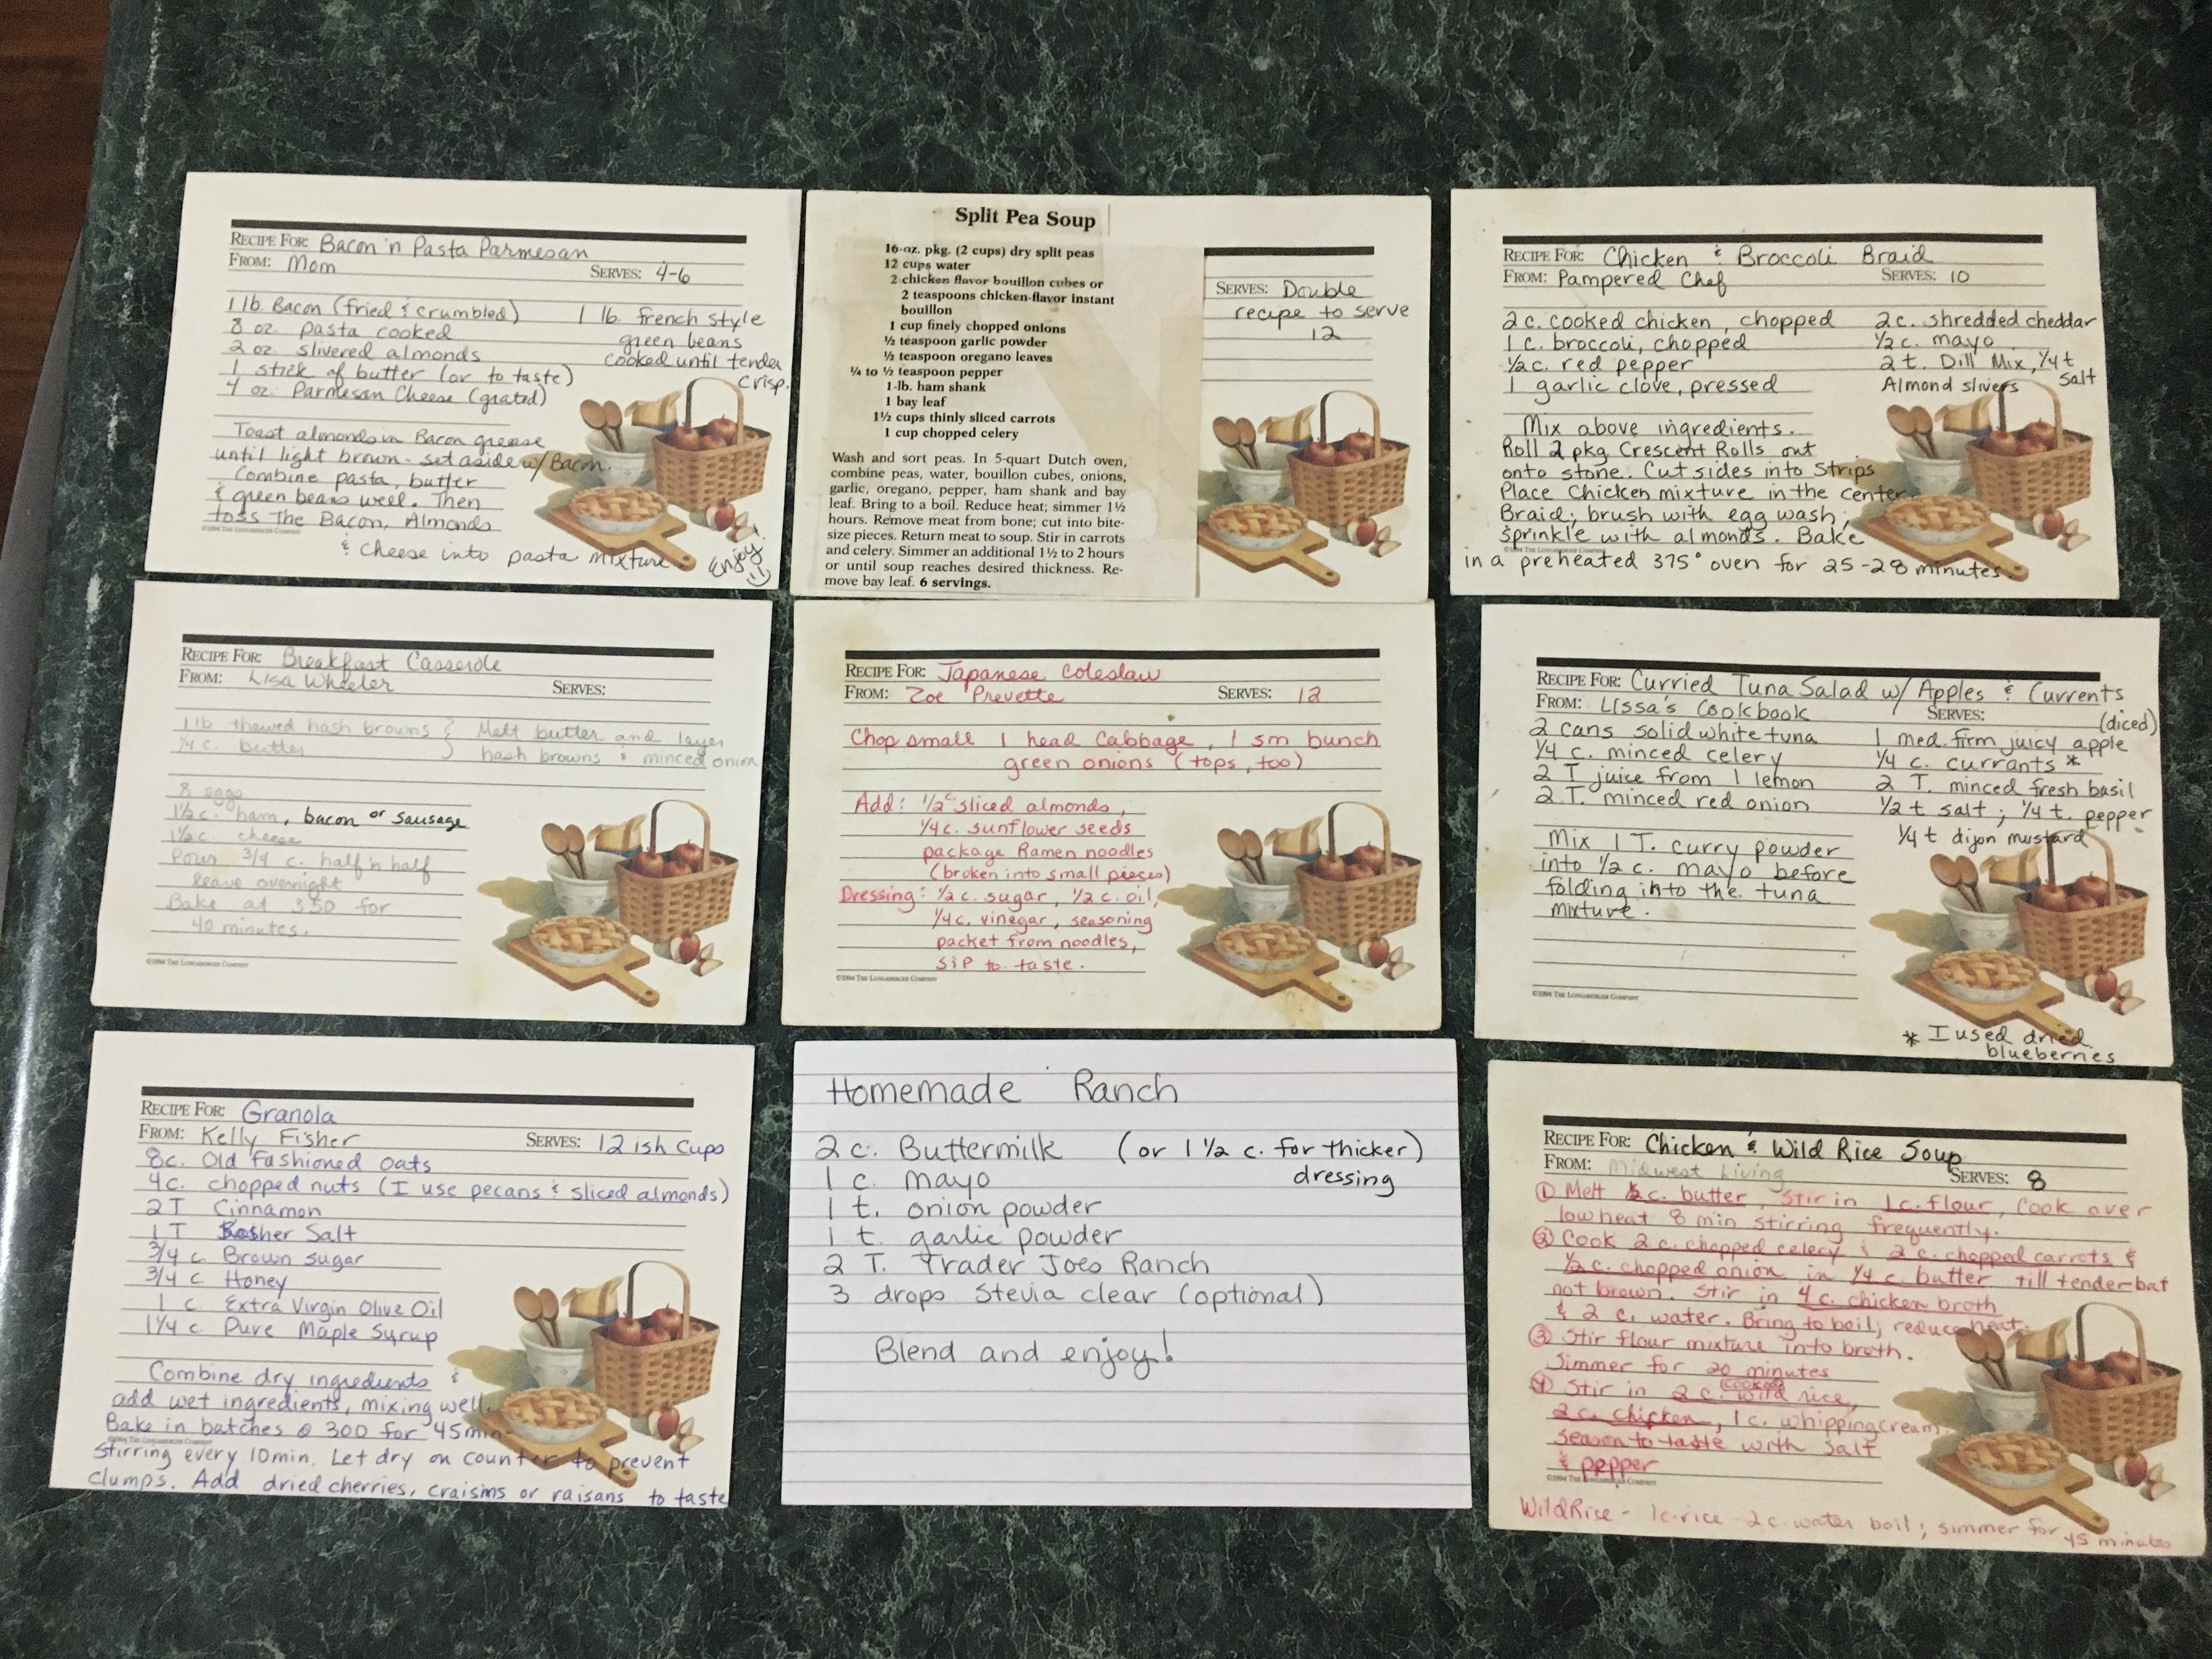 RECIPE FOR: Bacon 'n Pasta Parmesan
FROM: Mom SERVES: 4-6
1 lb. Bacon (fried & crumbled) 1 lb. french style
8 oz. pasta cooked green beans
2 oz. slivered almonds cooked until tender
1 stick of butter (or to taste) crisp.
4 oz. Parmesan Cheese (grated)
Toast almonds in Bacon grease
until light brown - set aside w/ Bacon.
Combine pasta, butter
& green beans well. Then
toss the Bacon, Almonds
©1994 THE LONGABERGER COMPANY
& cheese into pasta mixture. Enjoy!
Split Pea Soup
16-oz. pkg. (2 cups) dry split peas
12 cups water
2 chicken flavor bouillon cubes or
2 teaspoons chicken-flavor instant
bouillon
1 cup finely chopped onions
½ teaspoon garlic powder
½ teaspoon oregano leaves
¼ to ½ teaspoon pepper
1-lb. ham shank
1 bay leaf
1½ cups thinly sliced carrots
1 cup chopped celery
Wash and sort peas. In 5-quart Dutch oven,
combine peas, water, bouillon cubes, onions,
garlic, oregano, pepper, ham shank and bay
leaf. Bring to a boil. Reduce heat; simmer 1½
hours. Remove meat from bone; cut into bite-
size pieces. Return meat to soup. Stir in carrots
and celery. Simmer an additional 1½ to 2 hours
or until soup reaches desired thickness. Re-
move bay leaf. 6 servings.
SERVES: Double
recipe to serve
12
RECIPE FOR: Chicken & Broccoli Braid
FROM: Pampered Chef SERVES: 10
2 c. cooked chicken, chopped 2 c. shredded cheddar
1 c. broccoli, chopped ½ c. mayo
½ c. red pepper 2 t. Dill Mix, ¼ t
1 garlic clove, pressed Almond slivers salt
Mix above ingredients.
Roll 2 pkg. Crescent Rolls out
onto stone. Cut sides into strips
Place Chicken mixture in the center.
Braid; brush with egg wash;
sprinkle with almonds. Bake
©1994 THE LONGABERGER COMPANY
in a preheated 375° oven for 25-28 minutes.
RECIPE FOR: Breakfast Casserole
FROM: Lisa Wheeler SERVES:
1 lb thawed hash browns } Melt butter and layer
¼ c. butter } hash browns & minced onion
8 eggs
1½ c. ham, bacon or sausage
1½ c. cheese
Pour 3/4 c. half 'n half
leave overnight
Bake at 350 for
40 minutes.
©1994 THE LONGABERGER COMPANY
RECIPE FOR: Japanese Coleslaw
FROM: Zoe Prevette SERVES: 12
Chop small 1 head Cabbage, 1 sm bunch
green onions (tops, too)
Add: ½ c sliced almonds,
¼ c. sunflower seeds
package Ramen noodles
(broken into small pieces)
Dressing: ½ c. sugar, ½ c. oil,
¼ c. vinegar, seasoning
packet from noodles,
S&P to taste.
©1994 THE LONGABERGER COMPANY
RECIPE FOR: Curried Tuna Salad w/ Apples & Currents
FROM: Lissa's Cookbook SERVES: (diced)
2 cans solid white tuna 1 med. firm juicy apple
¼ c. minced celery ¼ c. currants *
2 T juice from 1 lemon 2 T. minced fresh basil
2 T. minced red onion ½ t salt; ¼ t. pepper
¼ t dijon mustard
Mix 1 T. curry powder
into ½ c. mayo before
folding into the tuna
mixture.
©1994 THE LONGABERGER COMPANY
* I used dried
blueberries
RECIPE FOR: Granola
FROM: Kelly Fisher SERVES: 12 ish cups
8c. Old Fashioned Oats
4c. chopped nuts (I use pecans & sliced almonds)
2 T Cinnamon
1 T Kosher Salt
3/4 c. Brown sugar
3/4 c Honey
1 c. Extra Virgin Olive Oil
1¼ c. Pure Maple Syrup
Combine dry ingredients &
add wet ingredients, mixing well.
Bake in batches @ 300 for 45 min-
stirring every 10 min. Let dry on counter to prevent
clumps. Add dried cherries, craisins or raisans to taste
Homemade Ranch
2 c. Buttermilk (or 1 ½ c. for thicker)
1 c. mayo dressing
1 t. onion powder
1 t. garlic powder
2 T. Trader Joes Ranch
3 drops Stevia clear (optional)
Blend and enjoy!
RECIPE FOR: Chicken & Wild Rice Soup
FROM: Midwest Living SERVES: 8
① Melt c. butter, stir in 1c. flour, cook over
low heat 8 min stirring frequently.
② Cook 2 c. chopped celery & 2 c. chopped carrots &
½ c. chopped onion in ¼ c. butter till tender but
not brown. Stir in 4 c. chicken broth
& 2 c. water. Bring to boil; reduce heat.
③ Stir flour mixture into broth.
Simmer for 20 minutes
④ Stir in 2 c. (cooked) wild rice,
2 c. chicken, 1 c. whipping cream.
season to taste with salt
& pepper
©1994 THE LONGABERGER COMPANY
Wild Rice - 1c. rice - 2 c. water boil; simmer for 45 minutes